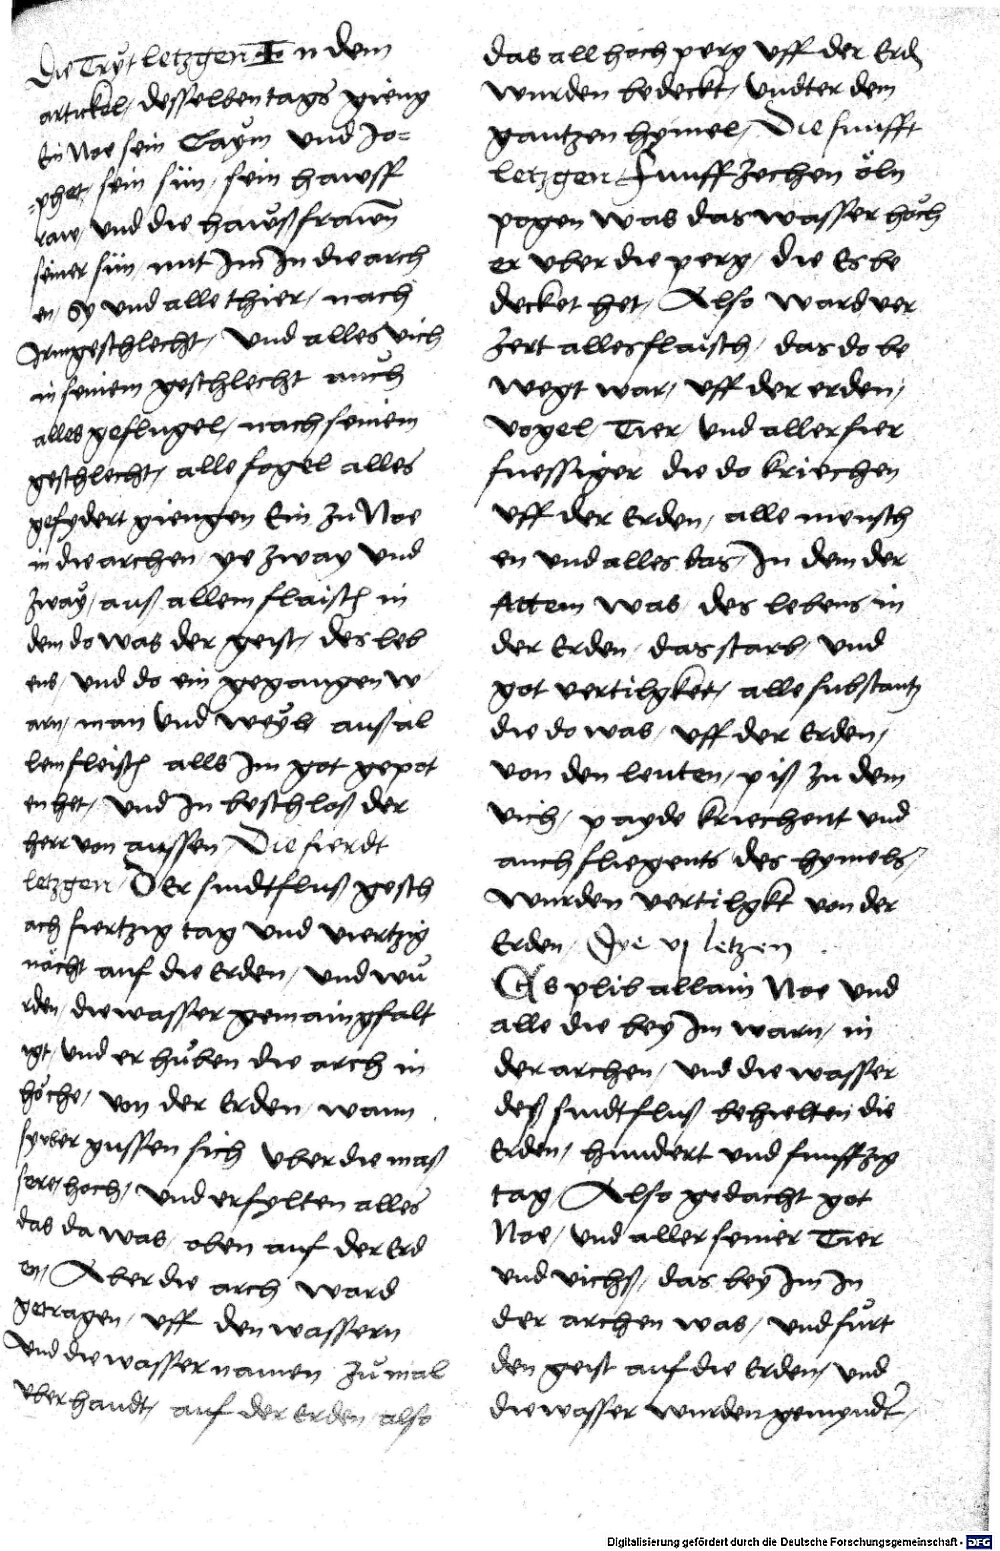 Die Tryt letzgen In dem
artickel, desselben tags gieng
Ein Noe sein Caym und Jo=
=phet, sein sün, sein hawsff
raw, und die hawßfrawen
seiner sün, mit Im In die arch
en, Sy und alle thier, nach
Irm geschlecht, Und alles vich
in seinem geschlecht auch
alles geflugel, nach seinem
geschlecht, alle fogel alles
gefydert giengen Ein zu Noe
in die archen, ye zway und
zway, auß allem flaisch in
dem do was der geist, des leb
ens, und do ein gegangen w
arn, man Und weyb auß al
lem fleisch alls Im got gepot
en het, Und In beschloß der
herr von aussen, Die fierdt
letzgen, Der sindtfluß gesch
ach fiertzig tag und viertzig
nächt auf die Erden, und wu
rden, die wasser gemaingfalt
igt, und er hůben die arch in
höche, von der Erden, wann
sy vber gussen sich vber die maß
sere hoch, und erfylten alles
das da was, oben auf der Erd
en, Aber die arch ward
getragen, uff den wassern
Und die wasser namen zů mal
vberhandt, auf der Erden, also
das all hoch perg uff der Erd
wurden bedeckt, Undter dem
gantzen hymel, Die funfft
letzgen Funffzechen öln
pogen was das wasser höch
er vber die perg, die Es be
decket het, Also ward ver
zert alles flaisch, das do be
wegt war, uff der erden,
vogel, Tier, Und aller fier
fuessiger die do kriechen
uff der Erden, alle mensch
en und alles das, In dem der
Attem was, des lebens in
der Erden, das starb, und
got vertilgket, alle substantz
die do was, uff der Erden,
von den leuten, piß zu dem
vich, payde kriechent und
auch fliegents des hymels,
wurden vertilgkt von der
Erden, Dye vj letzen
Es plib allain Noe und
alle die bey Im warn, in
der archen, und die wasser
deß sindtfluß behielten die
Erden, hundert und funffzig
tag, Also gedacht got
Noe, Und aller seiner Tier
und vichs, das bey Im In
der archen was, und fürt
den geist auf die Erden, und
die wasser wurden gemyndt,
Digitalisierung gefördert durch die Deutsche Forschungsgemeinschaft - DFG